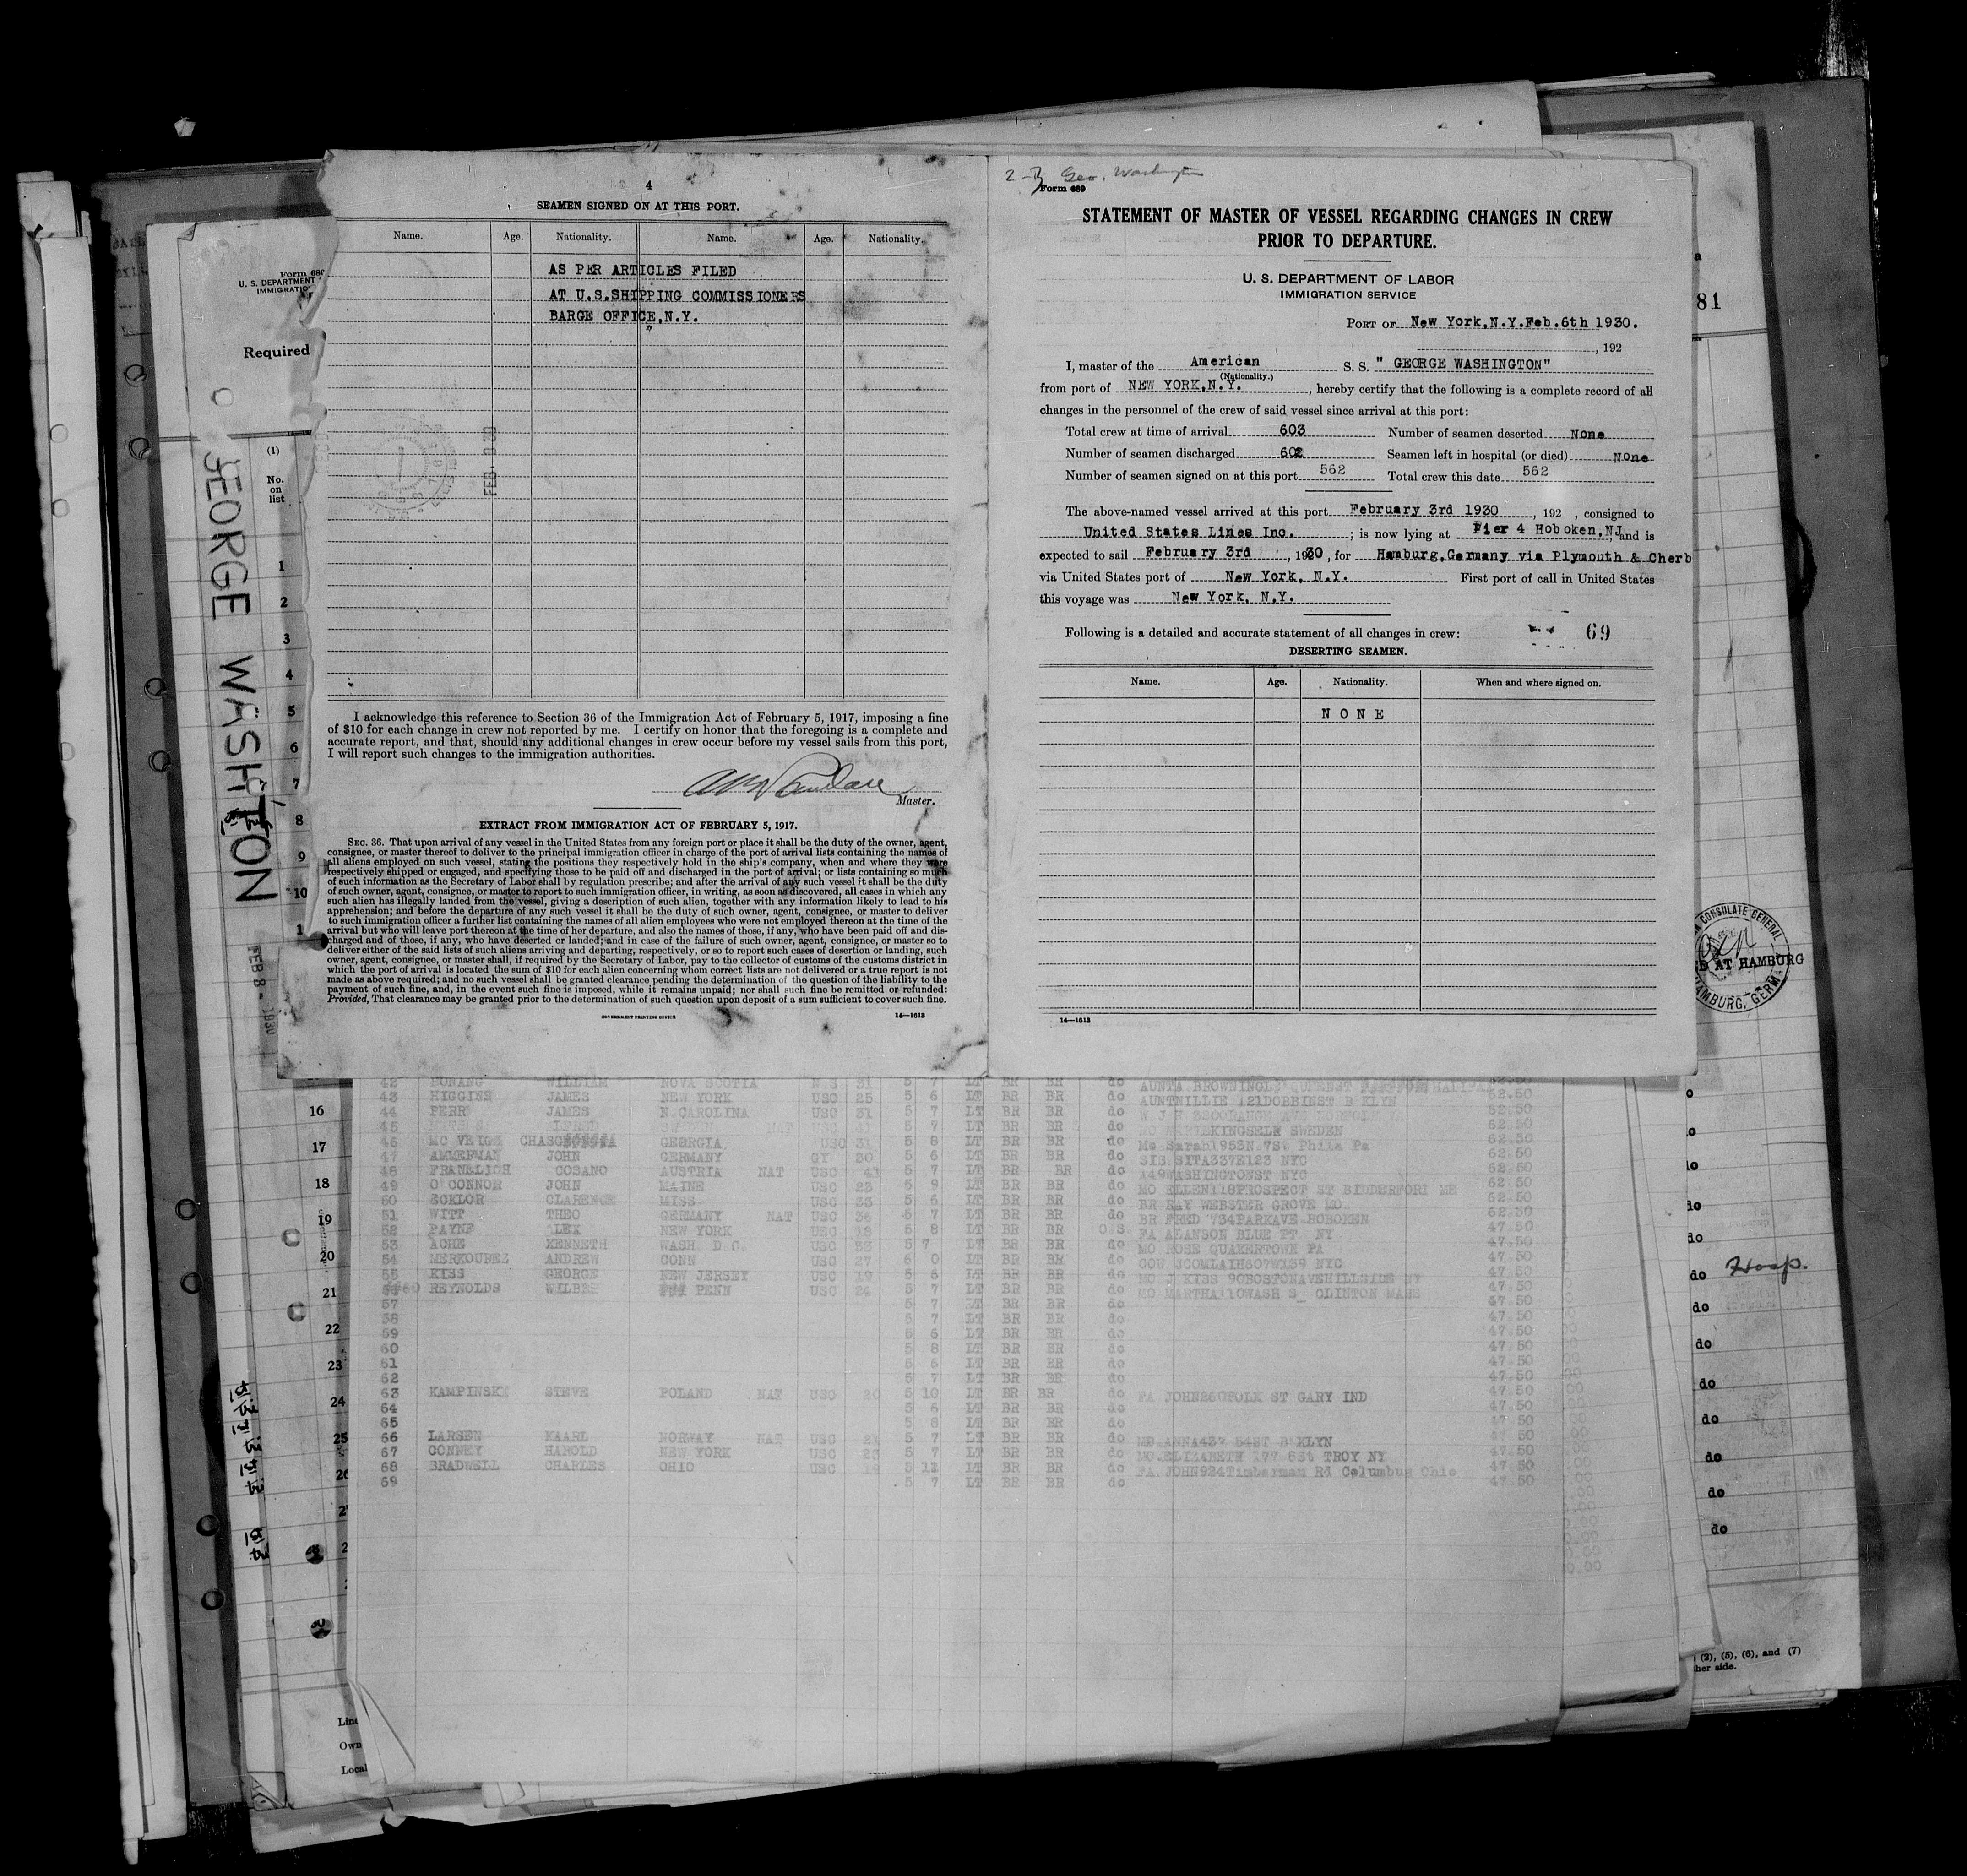 4
SEAMEN SIGNED ON AT THIS PORT.
Name. Age. Nationality. Name. Age. Nationality.
AS PER ARTICLES FILED
AT U.S.SHIPPING COMMISSIONERS
BARGE OFFICE,N.Y.
FEB. 8 30
I acknowledge this reference to Section 36 of the Immigration Act of February 5, 1917, imposing a fine
of $10 for each change in crew not reported by me. I certify on honor that the foregoing is a complete and
accurate report, and that, should any additional changes in crew occur before my vessel sails from this port,
I will report such changes to the immigration authorities.
Master.
EXTRACT FROM IMMIGRATION ACT OF FEBRUARY 5, 1917.
SEC. 36. That upon arrival of any vessel in the United States from any foreign port or place it shall be the duty of the owner, agent,
consignee, or master thereof to deliver to the principal immigration officer in charge of the port of arrival lists containing the names of
all aliens employed on such vessel, stating the positions they respectively hold in the ship's company, when and where they were
respectively shipped or engaged, and specifying those to be paid off and discharged in the port of arrival; or lists containing so much
of such information as the Secretary of Labor shall by regulation prescribe; and after the arrival of any such vessel it shall be the duty
of such owner, agent, consignee, or master to report to such immigration officer, in writing, as soon as discovered, all cases in which any
such alien has illegally landed from the vessel, giving a description of such alien, together with any information likely to lead to his
apprehension; and before the departure of any such vessel it shall be the duty of such owner, agent, consignee, or master to deliver
to such immigration officer a further list containing the names of all alien employees who were not employed thereon at the time of the
arrival but who will leave port thereon at the time of her departure, and also the names of those, if any, who have been paid off and dis-
charged and of those, if any, who have deserted or landed; and in case of the failure of such owner, agent, consignee, or master so to
deliver either of the said lists of such aliens arriving and departing, respectively, or so to report such cases of desertion or landing, such
owner, agent, consignee, or master shall, if required by the Secretary of Labor, pay to the collector of customs of the customs district in
which the port of arrival is located the sum of $10 for each alien concerning whom correct lists are not delivered or a true report is not
made as above required; and no such vessel shall be granted clearance pending the determination of the question of the liability to the
payment of such fine, and, in the event such fine is imposed, while it remains unpaid; nor shall such fine be remitted or refunded:
Provided, That clearance may be granted prior to the determination of such question upon deposit of a sum sufficient to cover such fine.
GOVERNMENT PRINTING OFFICE 14—1613
Geo. Washington
Form 689
STATEMENT OF MASTER OF VESSEL REGARDING CHANGES IN CREW
PRIOR TO DEPARTURE.
U. S. DEPARTMENT OF LABOR
IMMIGRATION SERVICE
PORT OF New York,N.Y.Feb.6th 1930.
, 192
I, master of the American S. S. " GEORGE WASHINGTON"
(Nationality.)
from port of NEW YORK,N.Y. , hereby certify that the following is a complete record of all
changes in the personnel of the crew of said vessel since arrival at this port:
Total crew at time of arrival 603 Number of seamen deserted None
Number of seamen discharged 602 Seamen left in hospital (or died) None
Number of seamen signed on at this port 562 Total crew this date 562
The above-named vessel arrived at this port February 3rd 1930 , 192 , consigned to
United States Lines Inc. ; is now lying at Pier 4 Hoboken,NJ, and is
expected to sail February 3rd , 1930 , for Hamburg,Germany via Plymouth & Cherb
via United States port of New York, N.Y. First port of call in United States
this voyage was New York, N.Y.
Following is a detailed and accurate statement of all changes in crew: 69
DESERTING SEAMEN.
Name. Age. Nationality. When and where signed on.
N O N E
14—1613
Form 686
U. S. DEPARTMENT
IMMIGRATIO
Required
(1)
No.
on
list
GEORGE WASHINGTON
1
2
3
4
5
6
7
8
9
10
1
FEB 8 - 1930
16
17
18
19
20
21
22
23
24
25
26
Line
Own
Local
42 WILLIAM NOVA SCOTIA 31 5 7 LT BR BR do
43 HIGGINS JAMES NEW YORK USC 25 5 6 LT BR BR do 62.50
44 PERR JAMES N.CAROLINA USC 31 5 7 LT BR BR do 62.50
45 NAT USC 41 5 7 LT BR BR do KINGSELF SWEDEN 62.50
46 MC VEIGH CHAS GEORGIA USC 31 5 8 LT BR BR do Mo Sarah1953N.7St Phila Pa 62.50
47 AMMERMAN JOHN GERMANY GY 30 5 6 LT BR BR do SIS SITA337E123 NYC 62.50
48 COSANO AUSTRIA NAT USC 43 5 7 LT BR BR do 149WASHINGTONST NYC 62.50
49 O'CONNOR JOHN MAINE USC 23 5 9 LT BR BR do MO ELLEN118PROSPECT ST BIDDERFORI ME 62.50
50 ECKLOR CLARENCE MISS USC 35 5 6 LT BR BR do BR RAY WEBSTER GROVE MO. 62.50
51 WITT THEO GERMANY NAT USC 36 5 7 LT BR BR do BR FRED 734PARKAVE HOBOKEN
52 PAYNE ALEX NEW YORK USC 5 8 LT BR BR O.S. FA ALANSON BLUE PT. NY 47.50
53 ACHE KENNETH WASH D.C. USC 5 7 LT BR BR do MO ROSE QUAKERTOWN PA 47.50
54 MERKOUREZ ANDREW CONN USC 27 6 0 LT BR BR do 47.50
55 KISS GEORGE NEW JERSEY USC 19 5 6 LT BR BR do MO J KISS 90BOSTONAVEHILLSIDE NY 47.50
REYNOLDS PENN USC 24 5 7 LT BR BR do MO MARTHA 10WASH S CLINTON MASS 47.50
57 5 7 LT BR BR do 47.50
58 5 7 LT BR BR do 47.50
59 5 6 LT BR BR do 47.50
60 5 8 LT BR BR do 47.50
61 5 6 LT BR BR do 47.50
62 5 7 LT BR BR do 47.50
63 KAMPINSKY STEVE POLAND NAT USC 20 5 10 LT BR BR do FA JOHN260POLK ST GARY IND 47.50
64 5 6 LT BR BR do 47.50
65 5 8 LT BR BR do 47.50
66 LARSEN KAARL NORWAY NAT USC 21 5 7 LT BR BR do 47.50
67 CONWEY HAROLD NEW YORK USC 23 5 7 LT BR BR do MO.ELIZABETH 177 6St TROY NY 47.50
68 BRADWELL CHARLES OHIO USC 19 5 LT BR BR do FA JOHN924Timberman Rd Columbus Ohio 47.50
69 5 7 LT BR BR do 47.50
81
CONSULATE GENERAL
AT HAMBURG
HAMBURG, GERM
do Hosp.
do
do
do
do
do
do
do
(2), (5), (6), and (7)
her side.